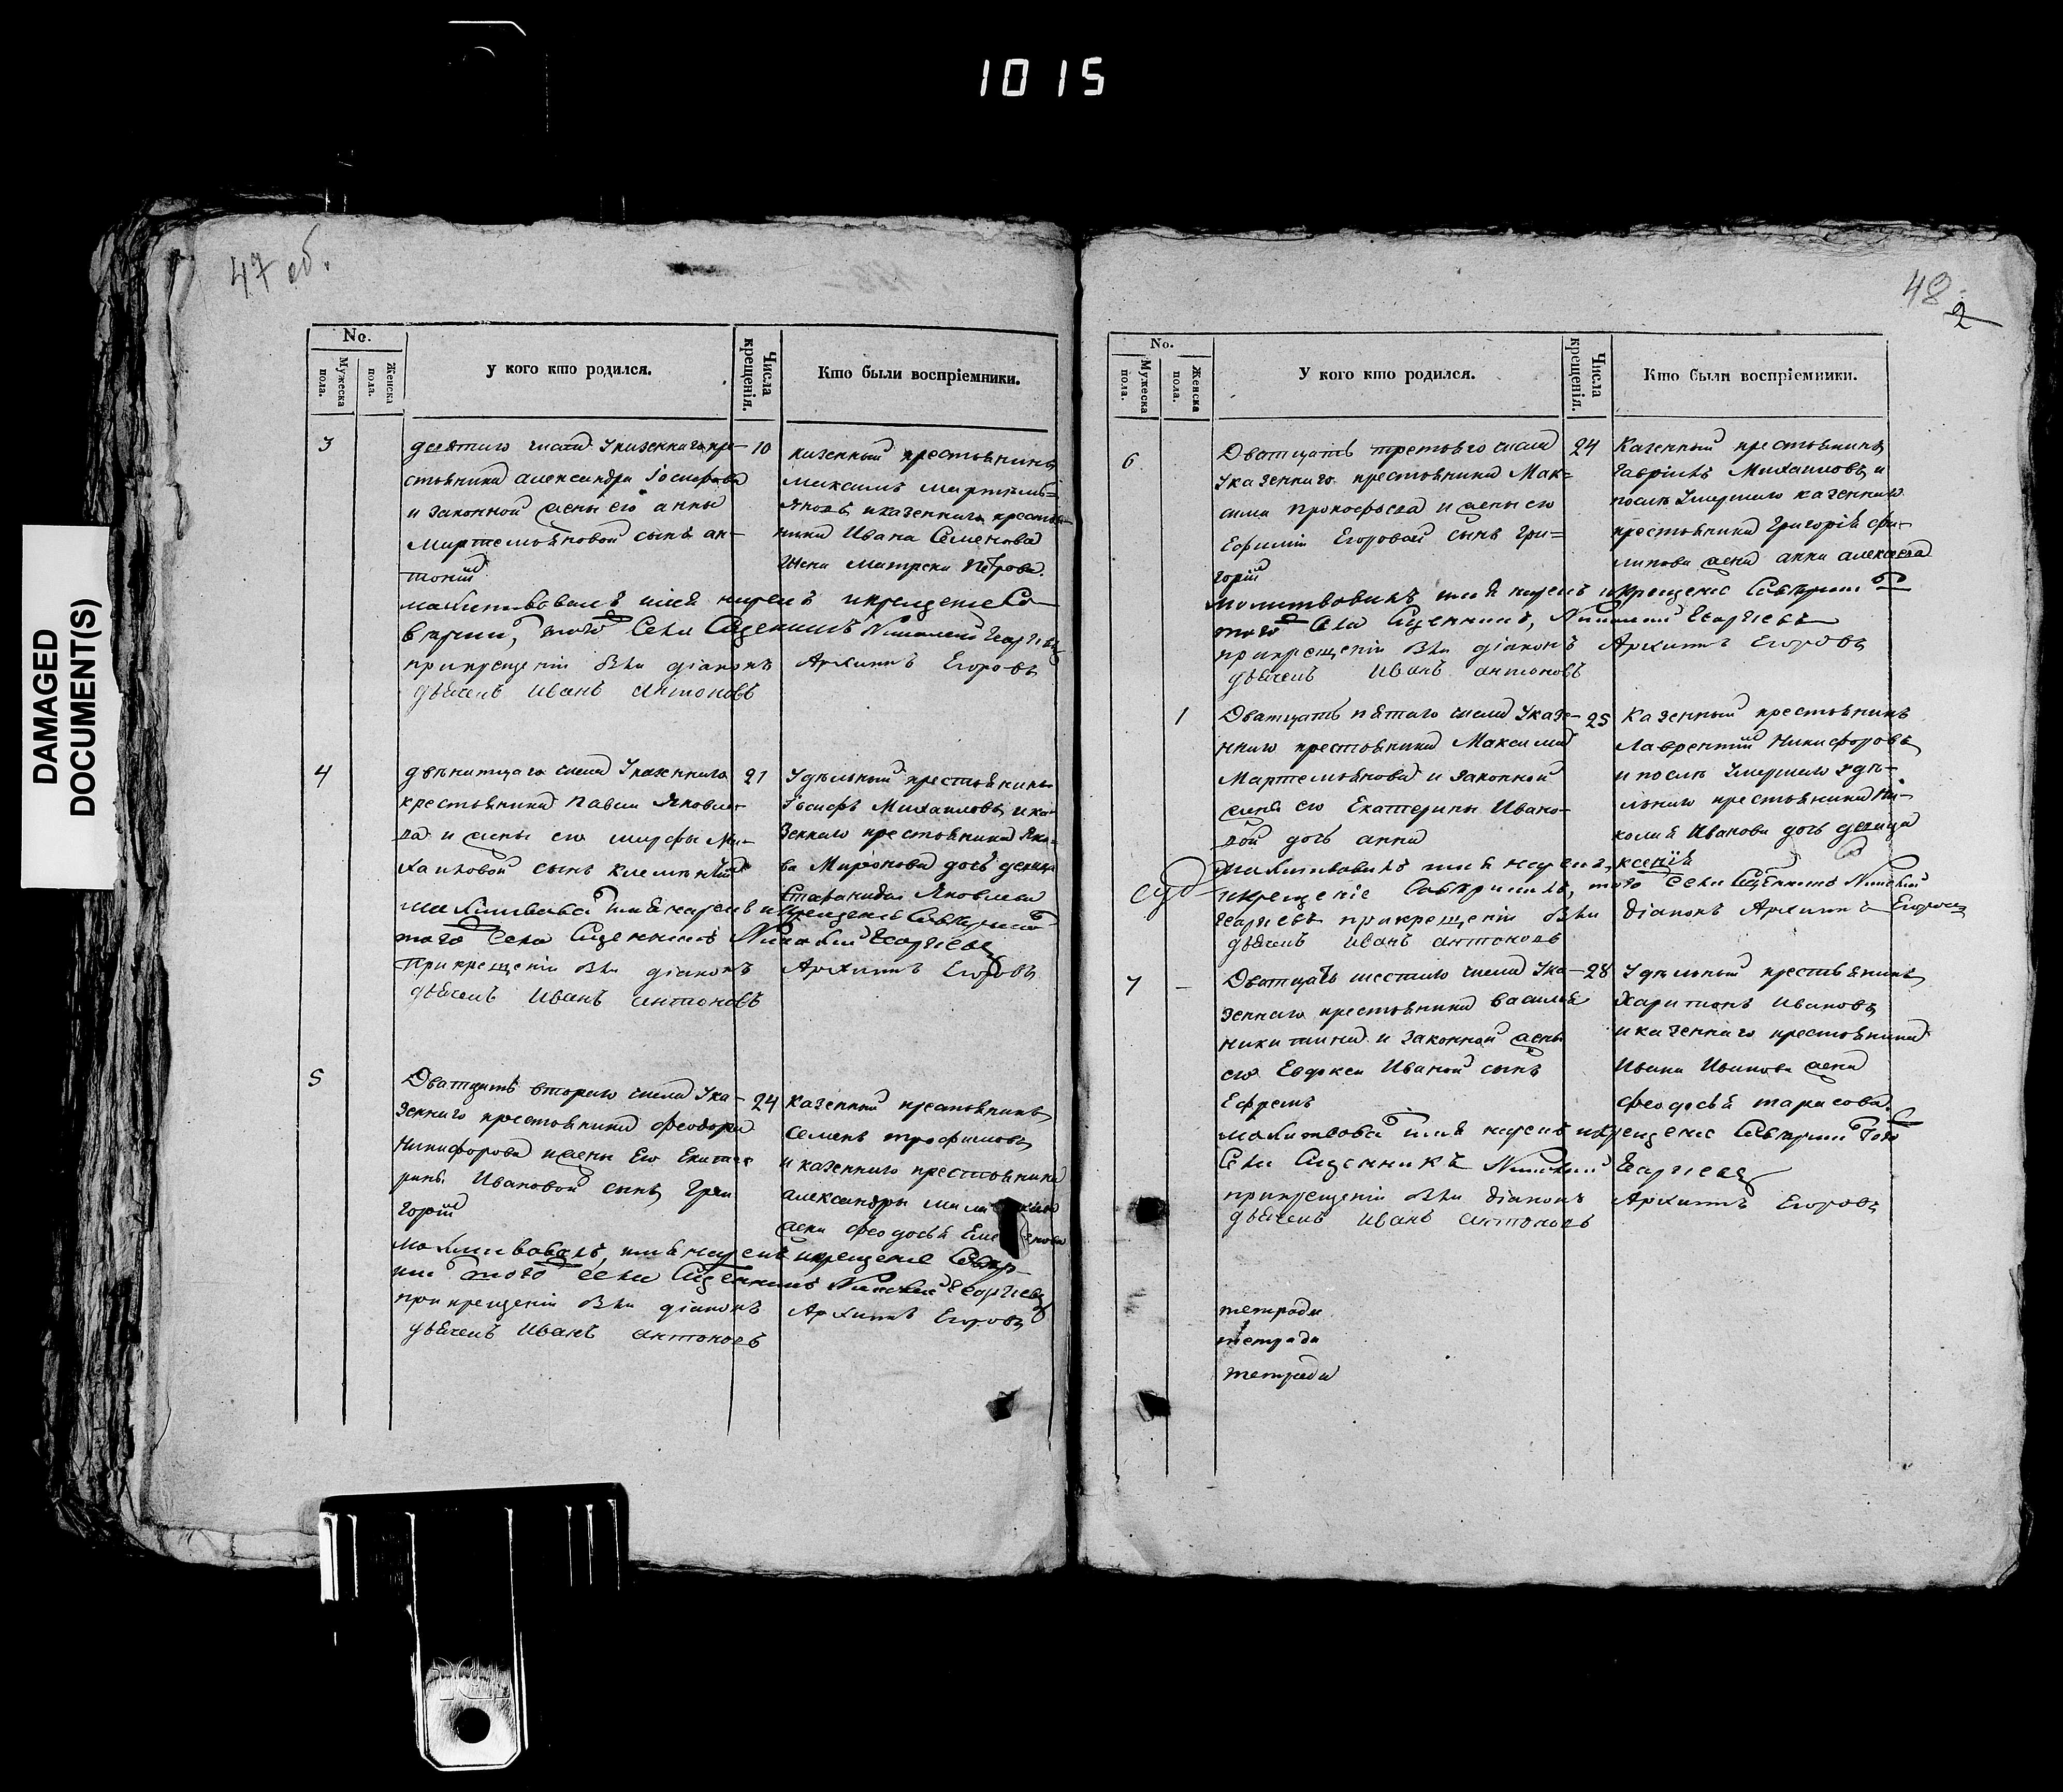 1015
DAMAGED
DOCUMENT(S)
47 об.
No.
Мужеска пола.
Женска пола.
у кого кто родился.
Числа крещенія.
Кто были воспріемники.
3
десятаго числа Указеннаго кре-
стьянина александра Iосифова
и законной жены его анны
Мартемьяновой сынъ ан-
тоній
10
казенный крестьянинъ
максимъ мартемь=
яновъ и казеннаго крестья-
нина Ивана Семенова
жена Матрена Петрова.
молитвовалъ имя нарекъ и крещение Со-
вершилъ, того Села Сщенникъ Николай Георгіевъ
при крещеніи были діаконъ Архипъ Егоровъ
дьячекъ Иванъ антоновъ
4
крестьянина павла Яковле-
ва и жены его марфы Ми-
хаиловой сынъ
21
Удельный крестьянинъ
Iосифъ Михаиловъ и ка-
зеннаго крестьянина Яко-
ва Миронова дочь девица
Стефанида Яковлева
того Села Сщенникъ Николай Георгіевъ
При крещеніи были діаконъ Архипъ Егоровъ
дьячекъ Иванъ антоновъ
5
Дватцать втораго числа Ука-
зеннаго крестьянина феодора
Никифорова и жены Его Екате-
рины Ивановой сынъ Гри
горій
24
казенный крестьянинъ
Семенъ трофимовъ
и казеннаго крестьянина
александра
жена феодосья
молитвовалъ, имя нарекъ и крещение Совер-
шилъ того села Сщенникъ Николай Георгіевъ
при крещеніи были діаконъ Архипъ Егоровъ
дьячекъ Иванъ антоновъ
48
2
No.
Мужеска пола.
Женска пола.
У кого кто родился.
Числа крещенія.
Кто были воспріемники.
6
Дватцать третьяго числа
Указеннаго крестьянина Мак=
сима прокофьева и жены его
Ефиміи Егоровой сынъ Гри=
горій
24
Казенный крестьянинъ
Гавріилъ Михаиловъ и
послѣ Умершаго казеннаго
крестьянина Григорія фи-
липова жена анна алексеева
молитвовалъ имя нарекъ и крещение Совершилъ
того Села Сщенникъ, Николай Георгіевъ
при крещеніи были діаконъ Архипъ Егоровъ
дьячекъ Иванъ антоновъ
1
Дватцать пятаго числа Указе-
ннаго крестьянина Максима
Мартемьянова и законной
жены его Екатерины Ивано-
вой дочь анна
25
Казенный крестьянинъ
Лаврентій Никифоровъ
и послѣ Умершаго удѣ-
льнаго крестьянина Ни-
колая Иванова дочь девица
ксенія
молитвовалъ имя нарекъ,
и крещеніе Совершилъ, того Села Сщенникъ Николай
Георгіевъ при крещеніи были діаконъ Архипъ Егоровъ
дьячекъ Иванъ антоновъ
7
Дватцать шестаго числа Ука-
зеннаго крестьянина василья
никитина и законной жены
его Евдокеи Иваной сынъ
Ефремъ
28
Удѣльный крестьянинъ
Харитонъ Ивановъ
и казеннаго крестьянина
Ивана Иванова жена
феодосья тарасова.
молитвовалъ имя нарекъ и крещение Совершилъ того
Села Сщенникъ Николай Георгіевъ
при крещеніи были діаконъ Архипъ Егоровъ
дьячекъ Иванъ антоновъ
тетради
тетради
тетради